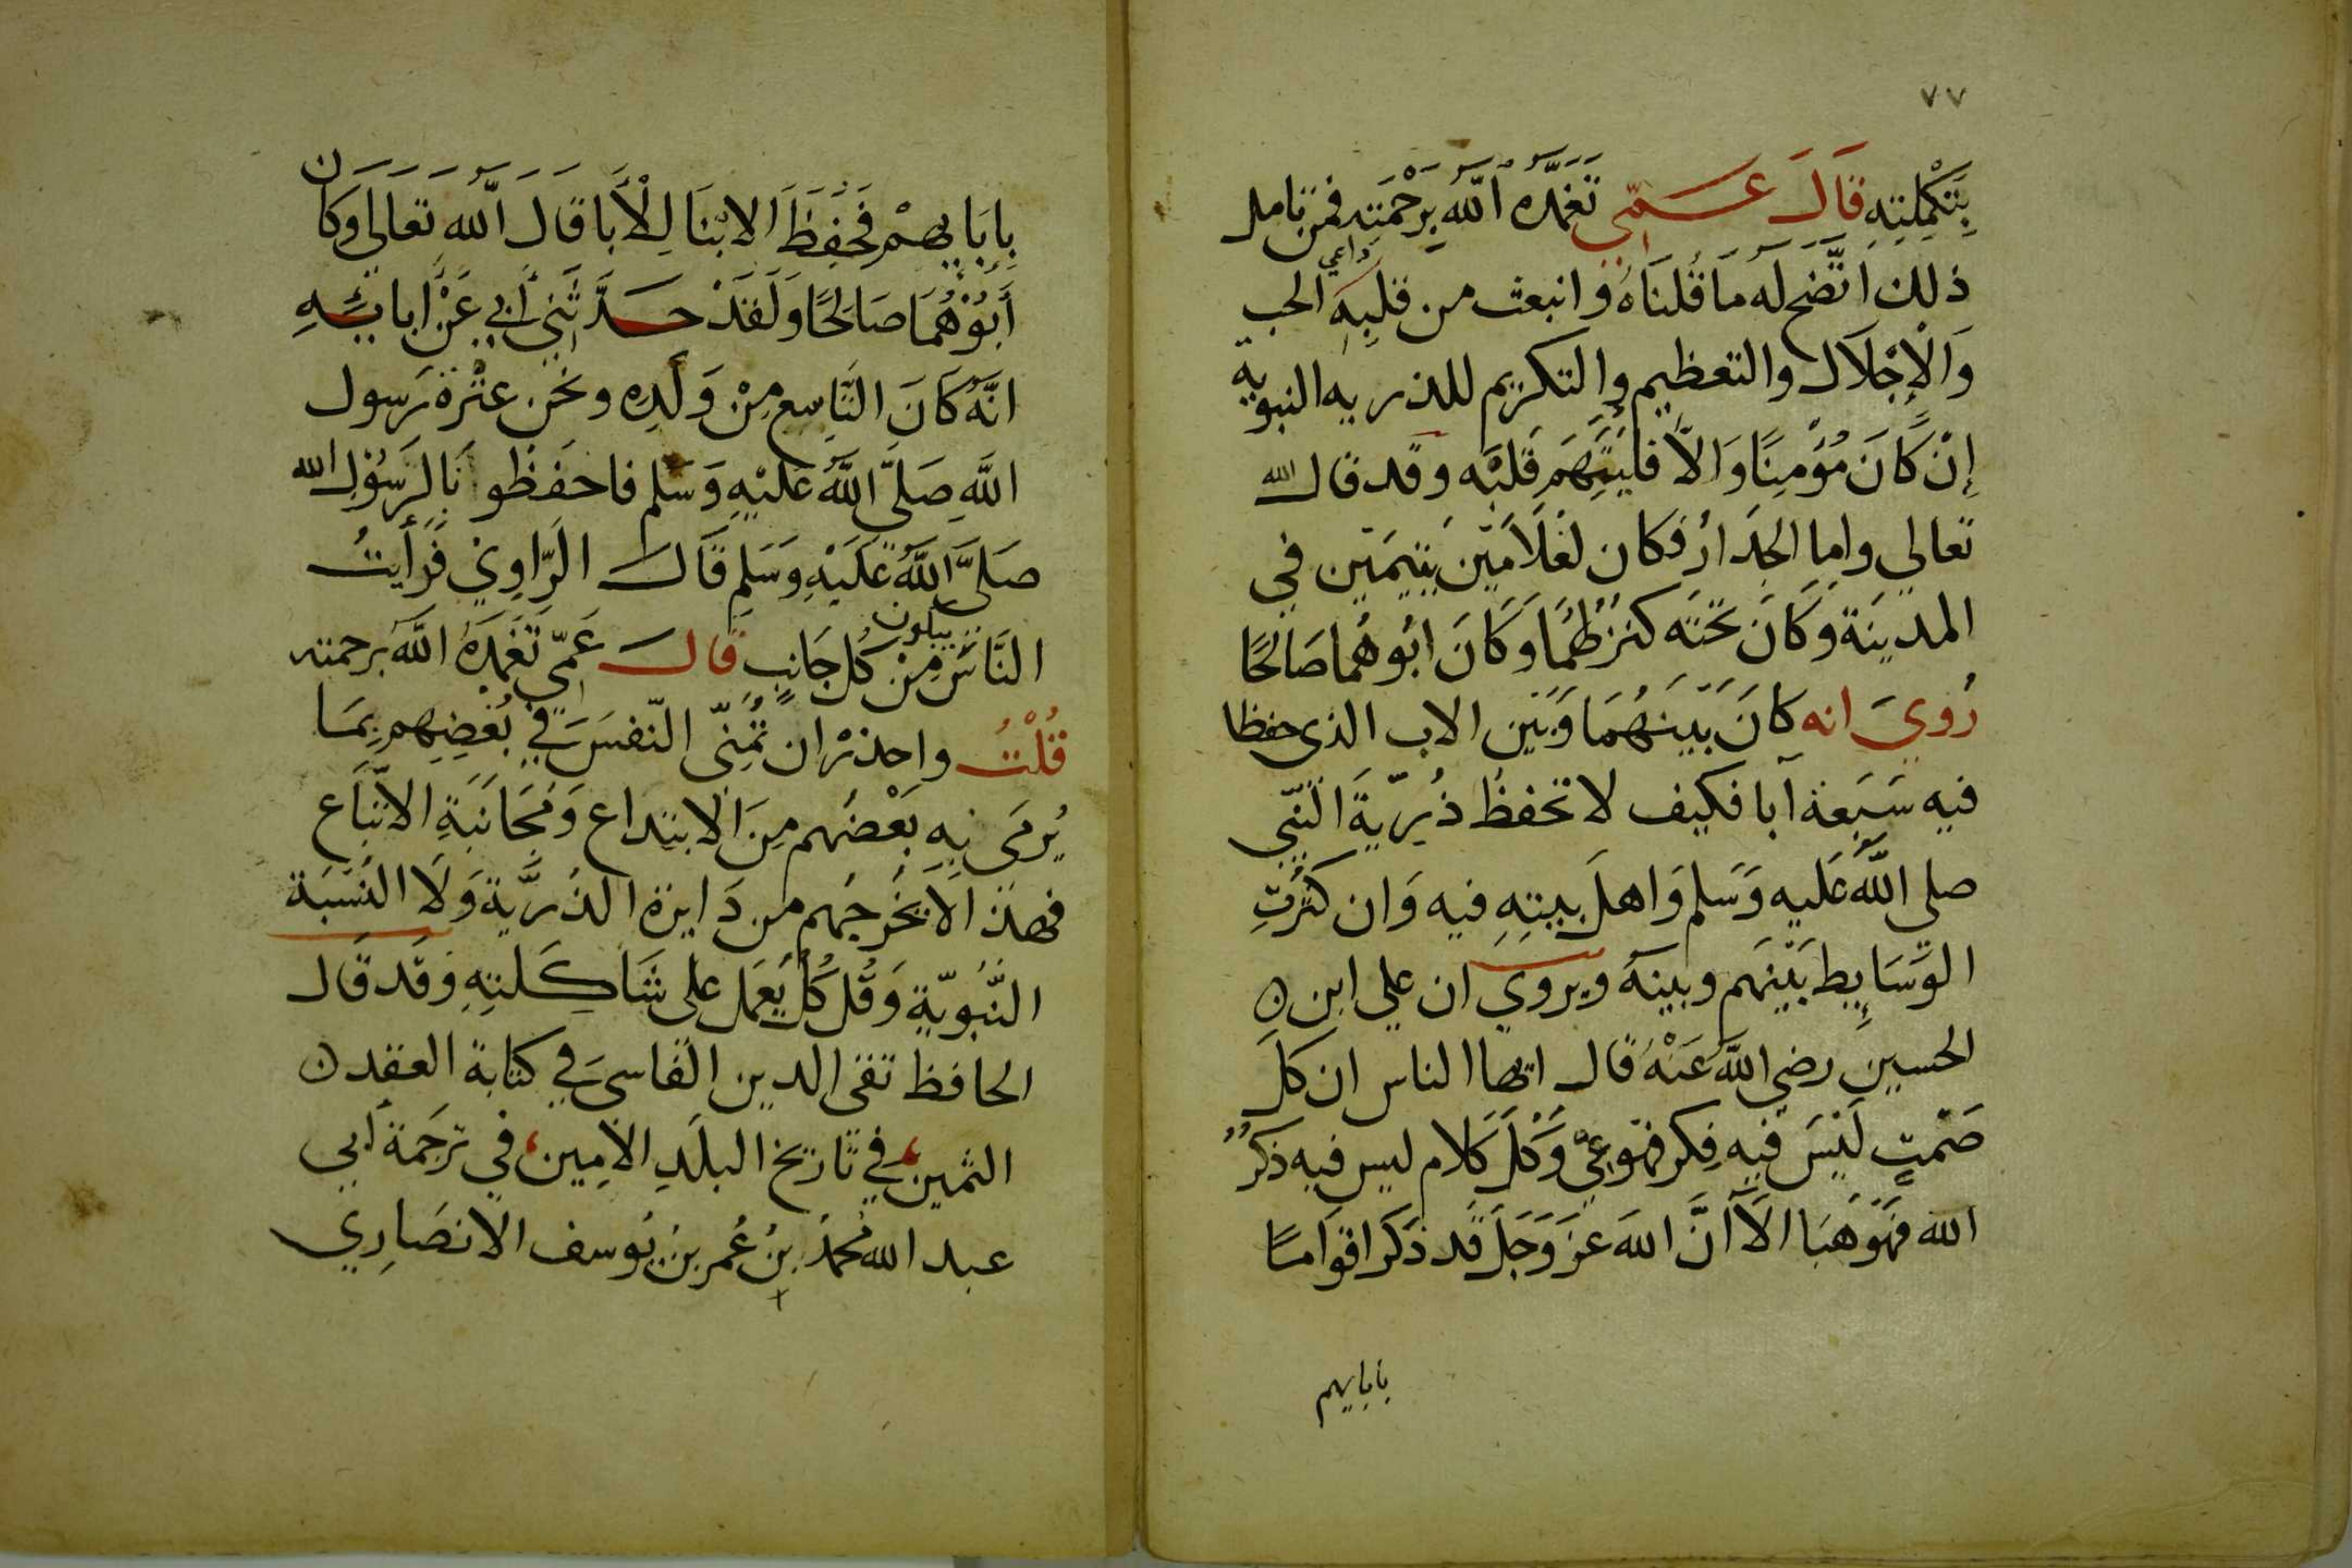 ٧٧
بِتَكْمِلَتِهِ قَالَ عَمِّي تَغَمَّدَهُ اللَّهُ بِرَحْمَتِهِ فمن تامل
ذلك اتَّضح لَه مَا قُلنَاهُ وانبعث من قلبِهِ داعي الحب
وَالْإِجْلَال والتعظيم والتكريم للذريه النبويه
إِنْ كَانَ مُؤْمِنًا وَالَّا فليَتَّهِم قَلبَه وقد قال الله
تعالي واما الجِدَارُ فكان لغُلَامَيْن يَتِيمَيْن في
المدِينَة وَكَانَ تَحتَه كنز لهُمَا وَكَانَ ابُوهُما صَالحًا
رُوِيَ انه كَانَ بَينَهُمَا وَبَيْن الاب الذي حفظا
فيه سَبَعة آبا فكيف لا تحفظُ ذُرِّيةَ النَّبِي
صلى اللَّه عَليه وَسَلم وَاهلَ بيتِهِ فيه وَان كثرَتِ
الوَسَايِط بَيْنَهم وبينهَ ويروي ان علي ابن
الحسين رضي اللَّه عَنْهُ قال ايها الناس ان كلَ
صَمْتٍ لَيْسَ فِيهِ فِكر فهو عِيّ وَكلَ كَلام ليس فيه ذكرُ
الله فهُوَ هَبَا الَا انَّ اللهَ عَز وَجَل قَد ذكَر اقوَامًا
بابايهم
بِابَايهِمْ فَحَفِظَ الابْنَا لِلْأَبَا قَالَ اللَّه تَعَالَى وَكَان
أَبُوْهُمَا صَالحًا وَلَقَدْ حَدَّثَنِي أَبي عَنْ ابايِهِ
انَّهُ كَانَ التَّاسِع مِنْ وَلَدِهِ ونحن عتْرَة رَسول
اللَّهِ صَلَّى اللَّهُ عَلَيْهِ وَسَلم فاحفَظُونَا لِرَسُوْلِ الله
صَلَّى اللَّهُ عَلَيْهِ وَسَلم قَالَ الرَّاوِي فَرَأَيتُ
النَّاسَ يبكون مِنْ كُل جَانِبٍ قال عَمِّي تَغَمدَهُ اللَّهُ برحمته
قُلْتُ واحذرْ ان تُمَنِّى النَّفسَ في بُغضِهِم بِمَا
يُرمَى بِهِ بَعْضُهم مِنَ الابتداع وَمُجَانَبَةِ الاتِّبَاع
فهذا لَا يُخْرجُهم من دَايرة الذُرِّيَّة وَلَا النِسْبَة
النَّبَوِيّةِ وَقُل كُل يَعْمَل علَى شَاكِلتِهِ وَقَد قَال
الحافظ تقى الدين الفَاسي في كتابة العقد
الثمين، في تَاريخ البلَدِ الامِين، في ترجَمة أبي
عبد الله مُحمدُ بنُ عُمر بن يُوسف الانصَارِي